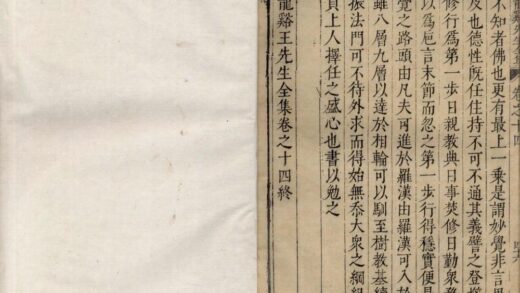 不知者佛也更有最上一乘是謂妙覺非言思
及也德性旣任住持不可不通其義譬之登塔
修行爲第一步日親教典日事焚修日勤衆務
以爲巵言末節而忽之第一步行得穩實便是
覺之路頭由凡夫可進於羅漢由羅漢可入於
雖八層九層以達於相輪可以馴至樹教基續
振法門可不待外求而得始無忝大衆之綱紀
貞上人擇任之盛心也書以勉之
龍谿王先生全集卷之十四終